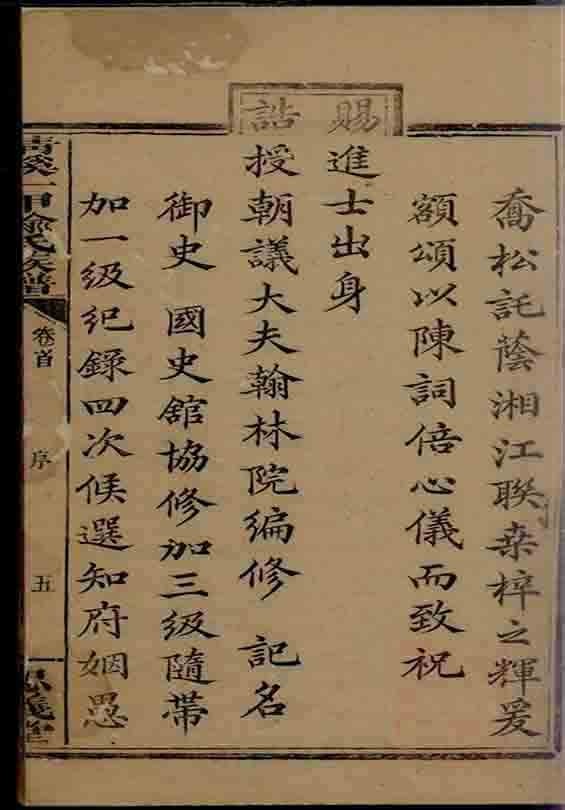 喬松託蔭湘江聯桒梓之輝爰
額頌以陳詞倍心儀而致祝
賜進士出身
誥授朝議大夫翰林院編修 記名
御史 國史舘協修加三級隨帶
加一級紀錄四次候選知府姻愚
氏族譜
卷首
序
五
義堂